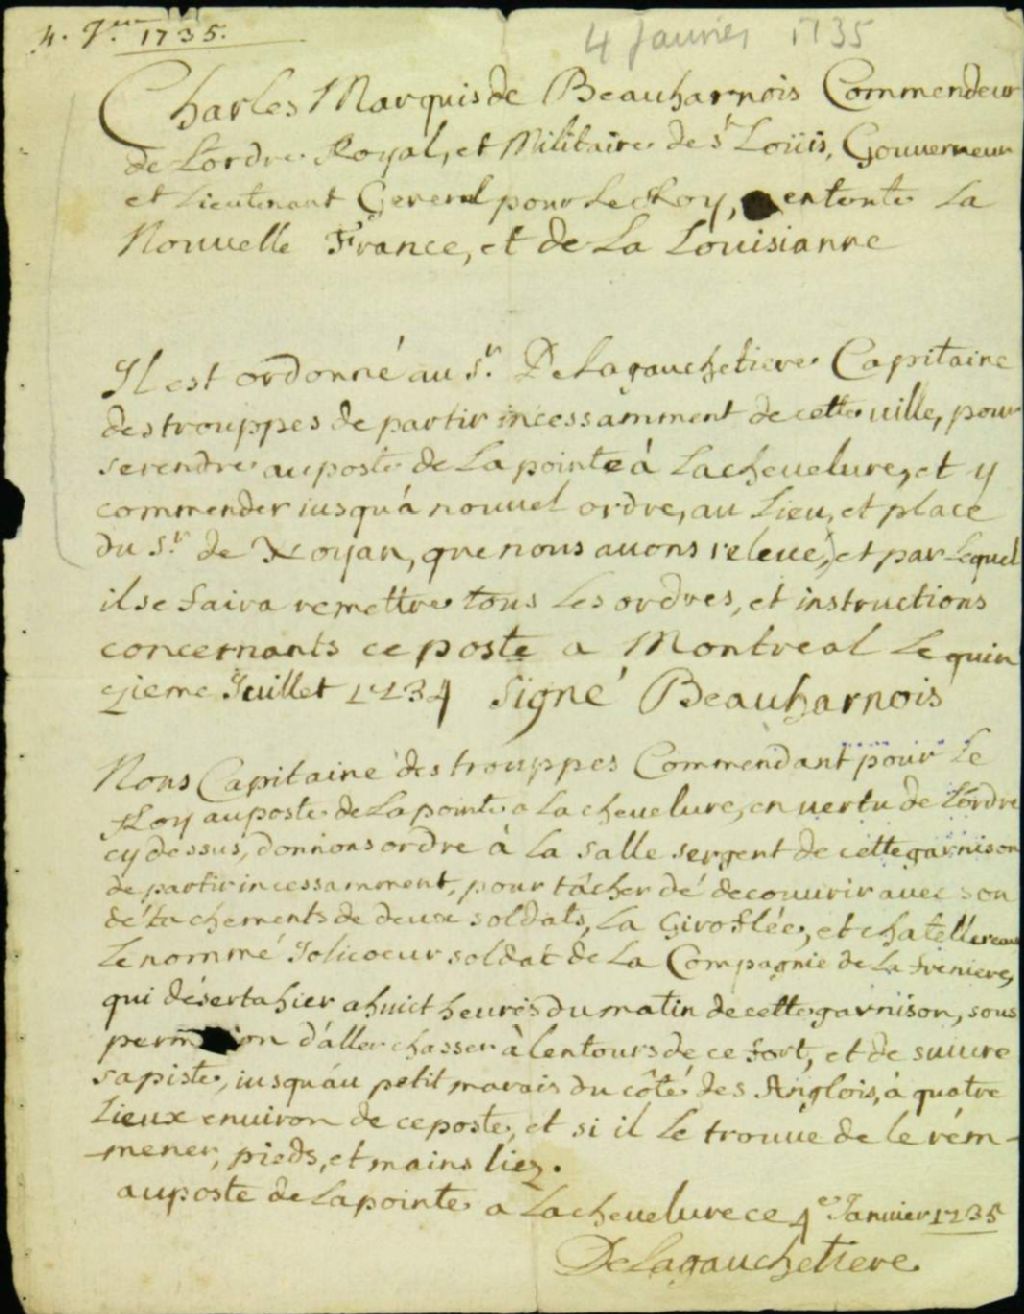 4. Jer 1735.
4 Janvier 1735
Charles Marquis de Beauharnois Commendeur
de Lordre Royal, et Militaire de st Loüis, Gouverneur
et Lieutenant General pour Le Roy, entoute La
Nouvelle France, et de La Louisianne
Il est ordonné au Sr. DeLagauchetiere Capitaine
des trouppes de partir incessamment de cette ville, pour
serendre auposte de La pointe à Lachevelure, et y
commender iusqu'à nouvel ordre, au Lieu, et place
du Sr. de Noyan, que nous avons relevé, et par Lequel
il se faira remettre tous Les ordres, et instructions
concernants ce poste a Montreal Le quin
zieme Juillet 1734 Signé Beauharnois
Nous Capitaine des trouppes Commendant pour Le
Roy auposte de Lapointe a La chevelure, en vertu de L'ordre
cy dessus, donnons ordre à La Salle sergent de cette garnison
de partir incessamment, pour tâcher dé decouvrir avec son
détachements de deux soldats, La Giroflée, et chatellereau
Le nommé Jolicoeur soldat de La Compagnie de La freniere,
qui déserta hier a huict heures du matin de cette garnison, sous
perm on d'aller chasser à lentours de ce fort, et de suivre
sa piste, iusqu'au petit marais du côté des Anglois, à quatre
Lieux environ de ceposte, et si il Le trouve de le rem-
-mener, pieds, et mains liez.
auposte de Lapointe a Lachevelure ce 4e Janvier 1735
DeLagauchetiere